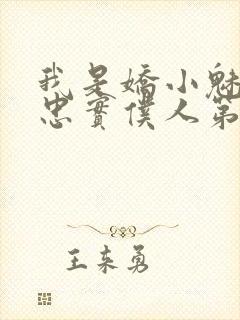 我是嬌小魅
忠實僕人第
王来勇